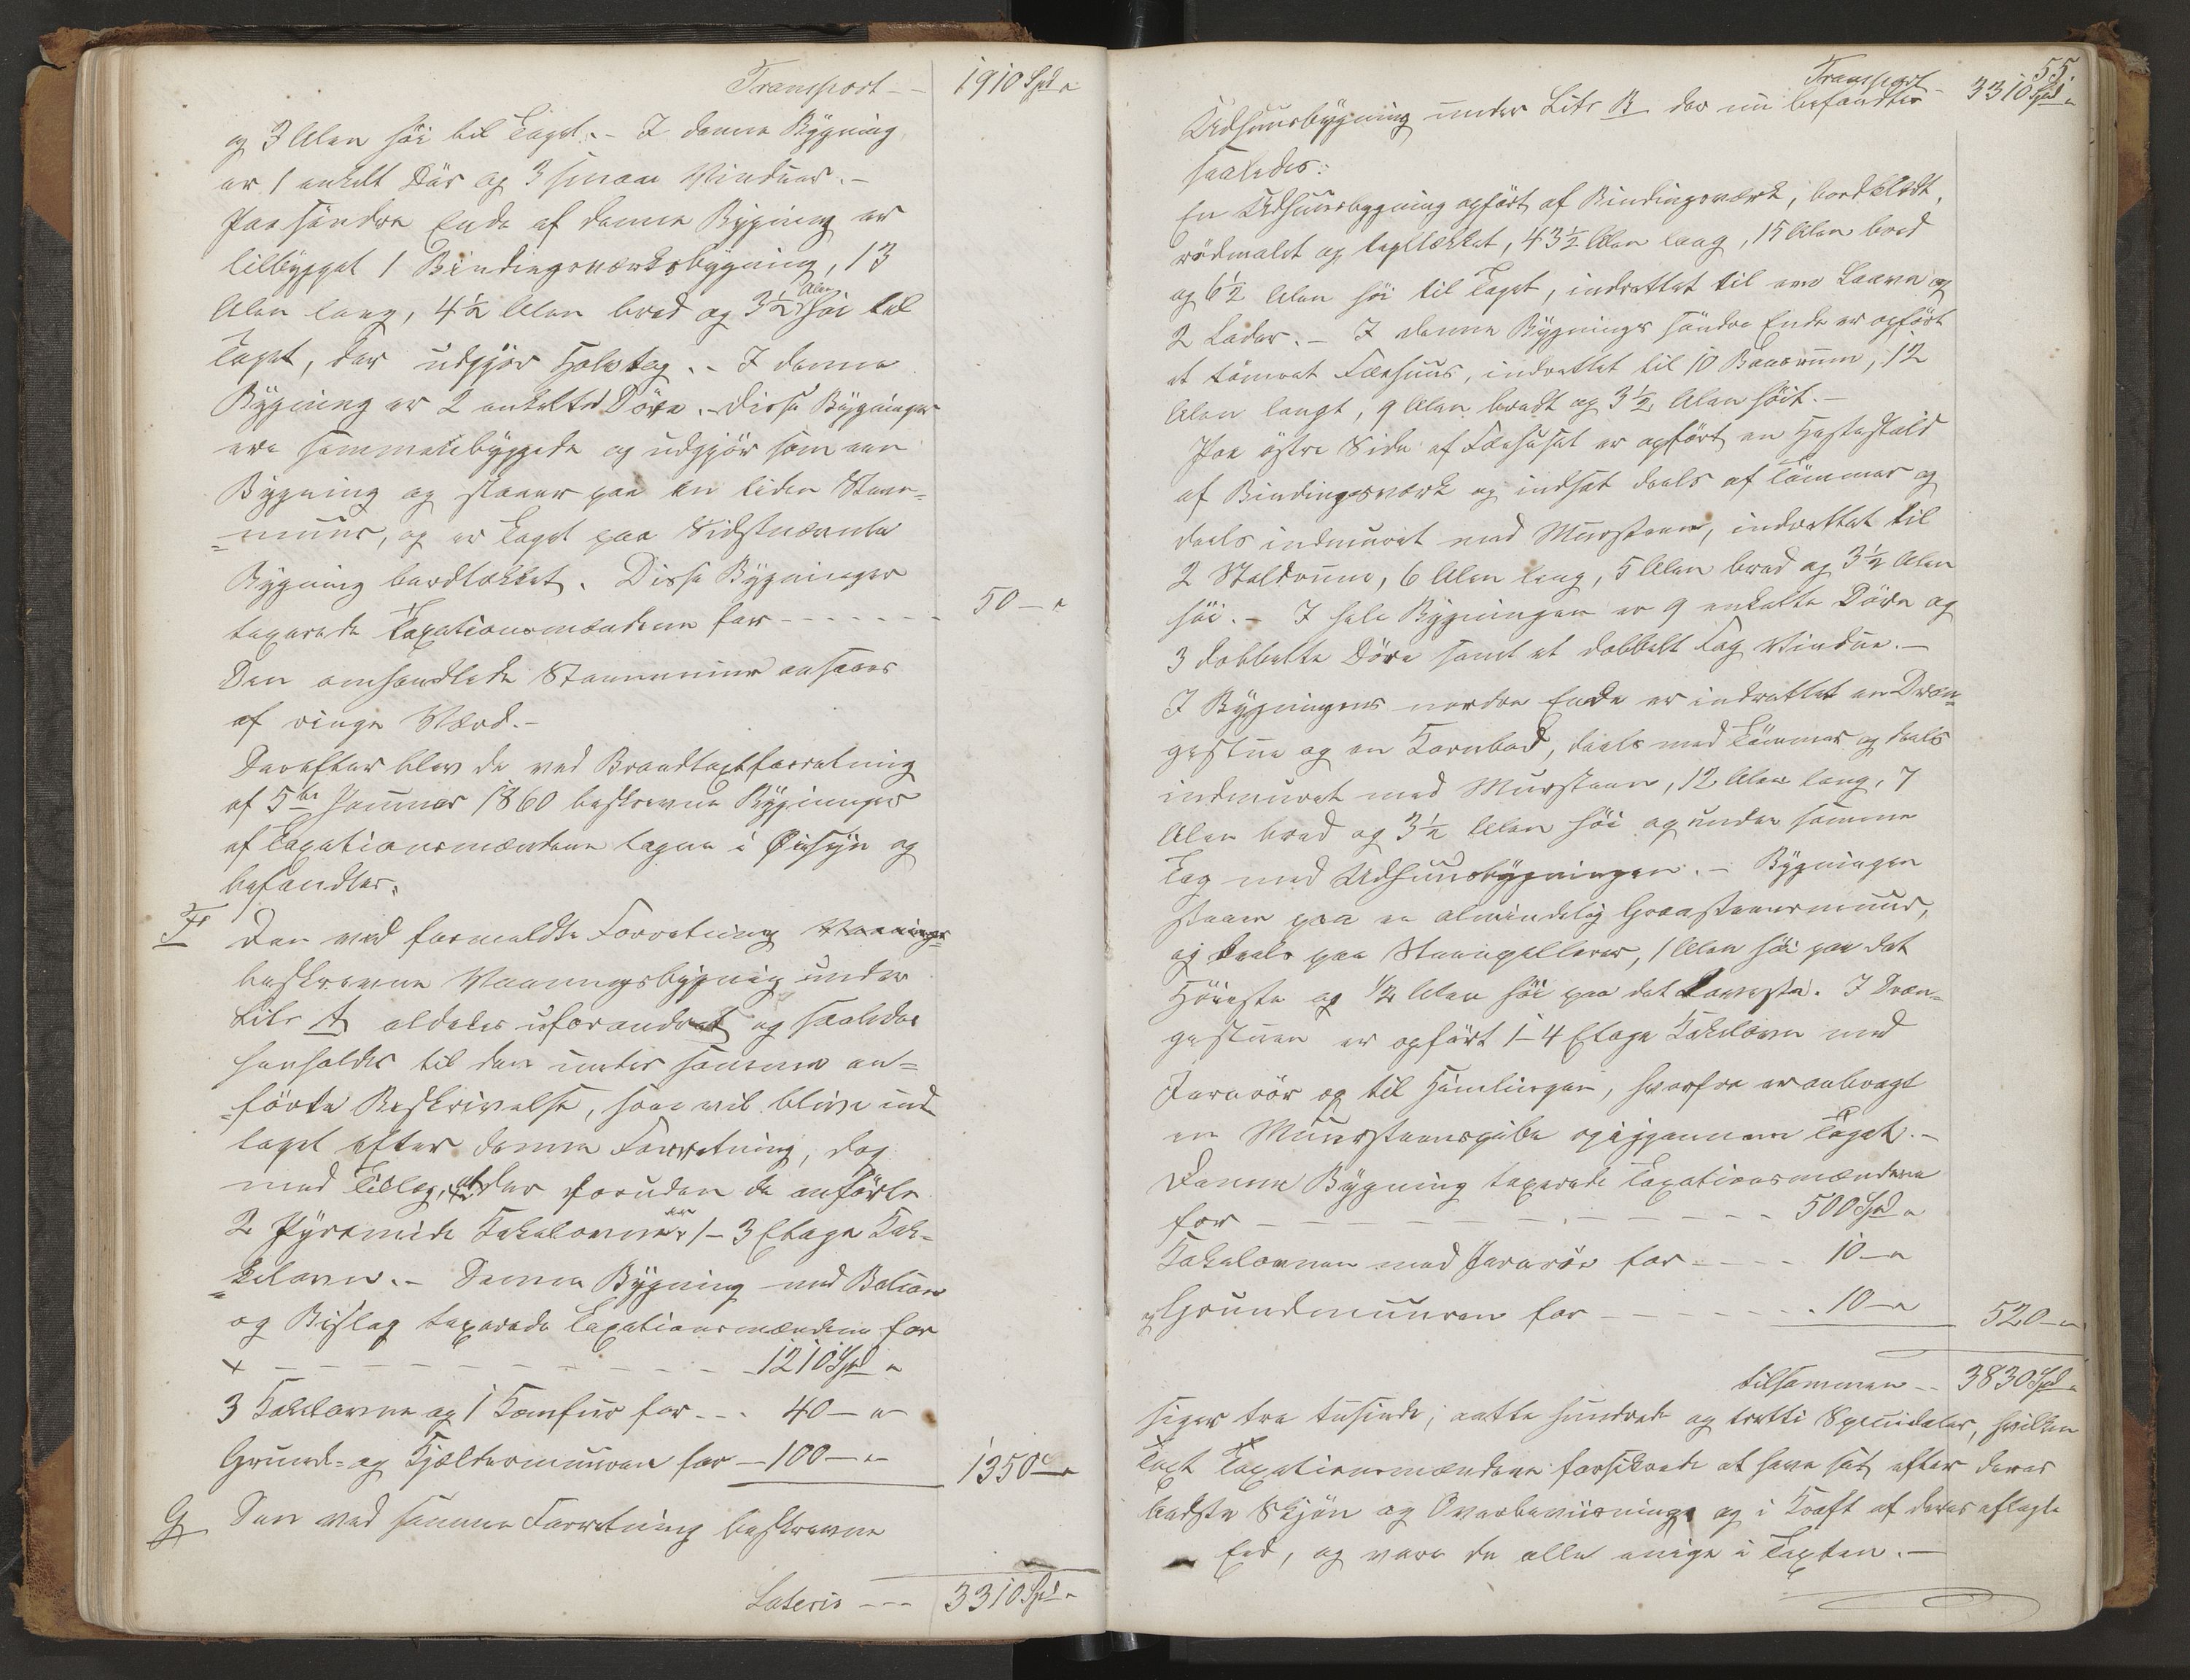 Transport -- 1910 Spd "
og 3 Alen höi til Taget. - I denne Bygning
er 1 enkelt Dör og 3 smaae Vinduer. -
Paa söndre Ende af denne Bygning er
tilbygget 1 Bindingsværksbygning, 13
Alen lang, 4½ Alen bred og 3½ Alen höi til
Taget, der udgjör Halvtag. - I denne
Bygning er 2 enkelte Döre. - Disse Bygninger
ere sammenbyggede og udgjör som een
Bygning og staaer paa en liden Steen=
=muur, og er Taget paa Sidstnævnte
Bygning bordtækket. Disse Bygninger
taxerede Taxationsmændene for ------- 50 - "
Den omhandlede Steenmuur ansaaes
af ringe Værd. -
Derefter blev de ved Brandtaxtforretning
af 5te Januar 1860 beskrevne Bygninger
af Taxationsmændene tagne i Øiesyn og
befandtes:
F Den ved formeldte Forretning
beskrevne Vaaningsbygnig under
Litr A aldeles uforandret og saaledes
henholdes til den under samme an=
=förte Beskrivelse, som vil blive ind
taget efter denne Forretning, dog
med Tillæg, at der foruden de anförte
2 Pyramide Kakelovne er 1 - 3 Etage Kak=
=kelovn. - Denne Bygning med Balcon
og Bislag taxerede Taxationsmændene for
+ - - - - - - - - - - 1210 Spd "
3 Kakelovne og 1 Komfur for --- 40 - "
Grund- og Kjældermuuren for - 100 - " 1350 - "
G Den ved samme Forretning beskrevne
Lateris --- 3310 Spd "
55.
Transport - 3310 Spd "
Udhuusbygning under Litr B der nu befandtes
saaledes:
En Udhuusbygning opfört af Bindingsværk, bordklædt,
rödmalet og teglækket, 43½ Alen lang, 15 Alen bred
og 6½ Alen höi til Taget, indrettet til een Laave og
2 Lader. - I denne Bygnings söndre Ende er opfört
et tömret Fæehuus, indrettet til 10 Baasrum, 12
Alen langt, 9 Alen bredt og 3½ Alen höit. -
Paa östre Side af Fæehuset er opfört en Hestestald
af Bindingsværk og indsat deels af Tömmer og
deels indmuret med Mursteen, indrettet til
2 Staldrum, 6 Alen lang, 5 Alen bred og 3½ Alen
höi. - I hele Bygningen er 9 enkelte Döre og
3 dobbelte Döre samt et dobbelt Fag Vindue. -
I Bygningens nordre Ende er indrettet en Dren=
gestue og en Kornbod, deels med Tömmer og deels
indmuret med Mursteen, 12 Alen lang, 7
Alen bred og 3½ Alen höi og under samme
Tag med Udhuusbygningen. - Bygningen
staaer paa en almindelig Graasteensmuur,
og deels paa Steenpillerer, 1 Alen höi paa det
Höieste og ½ Alen höi paa det Laveste. I Dren=
gestuen er opfört 1 - 4 Etage Kakelovn med
Jernrör og til Himlingen, hvorfra er anbragt
en Muursteenspibe opigjennem Taget. -
Denne Bygning taxerede Taxationsmændene
for - - - - - - - - - - - 500 Spd "
Kakelovnen med Jernrör for ---- 10 - "
og Grundmuuren for - - - - - - 10 - " 520 - "
tilsammen -- 3830 Spd "
siger tre tusinde, aatte hundrede og tretti Speciedaler, hvilken
Taxt Taxationsmændene forsikrede at have sat efter deres
bedste Skjön og Overbeviisning og i Kraft af deres aflagte
Eed, og vare de alle enige i Taxten. -